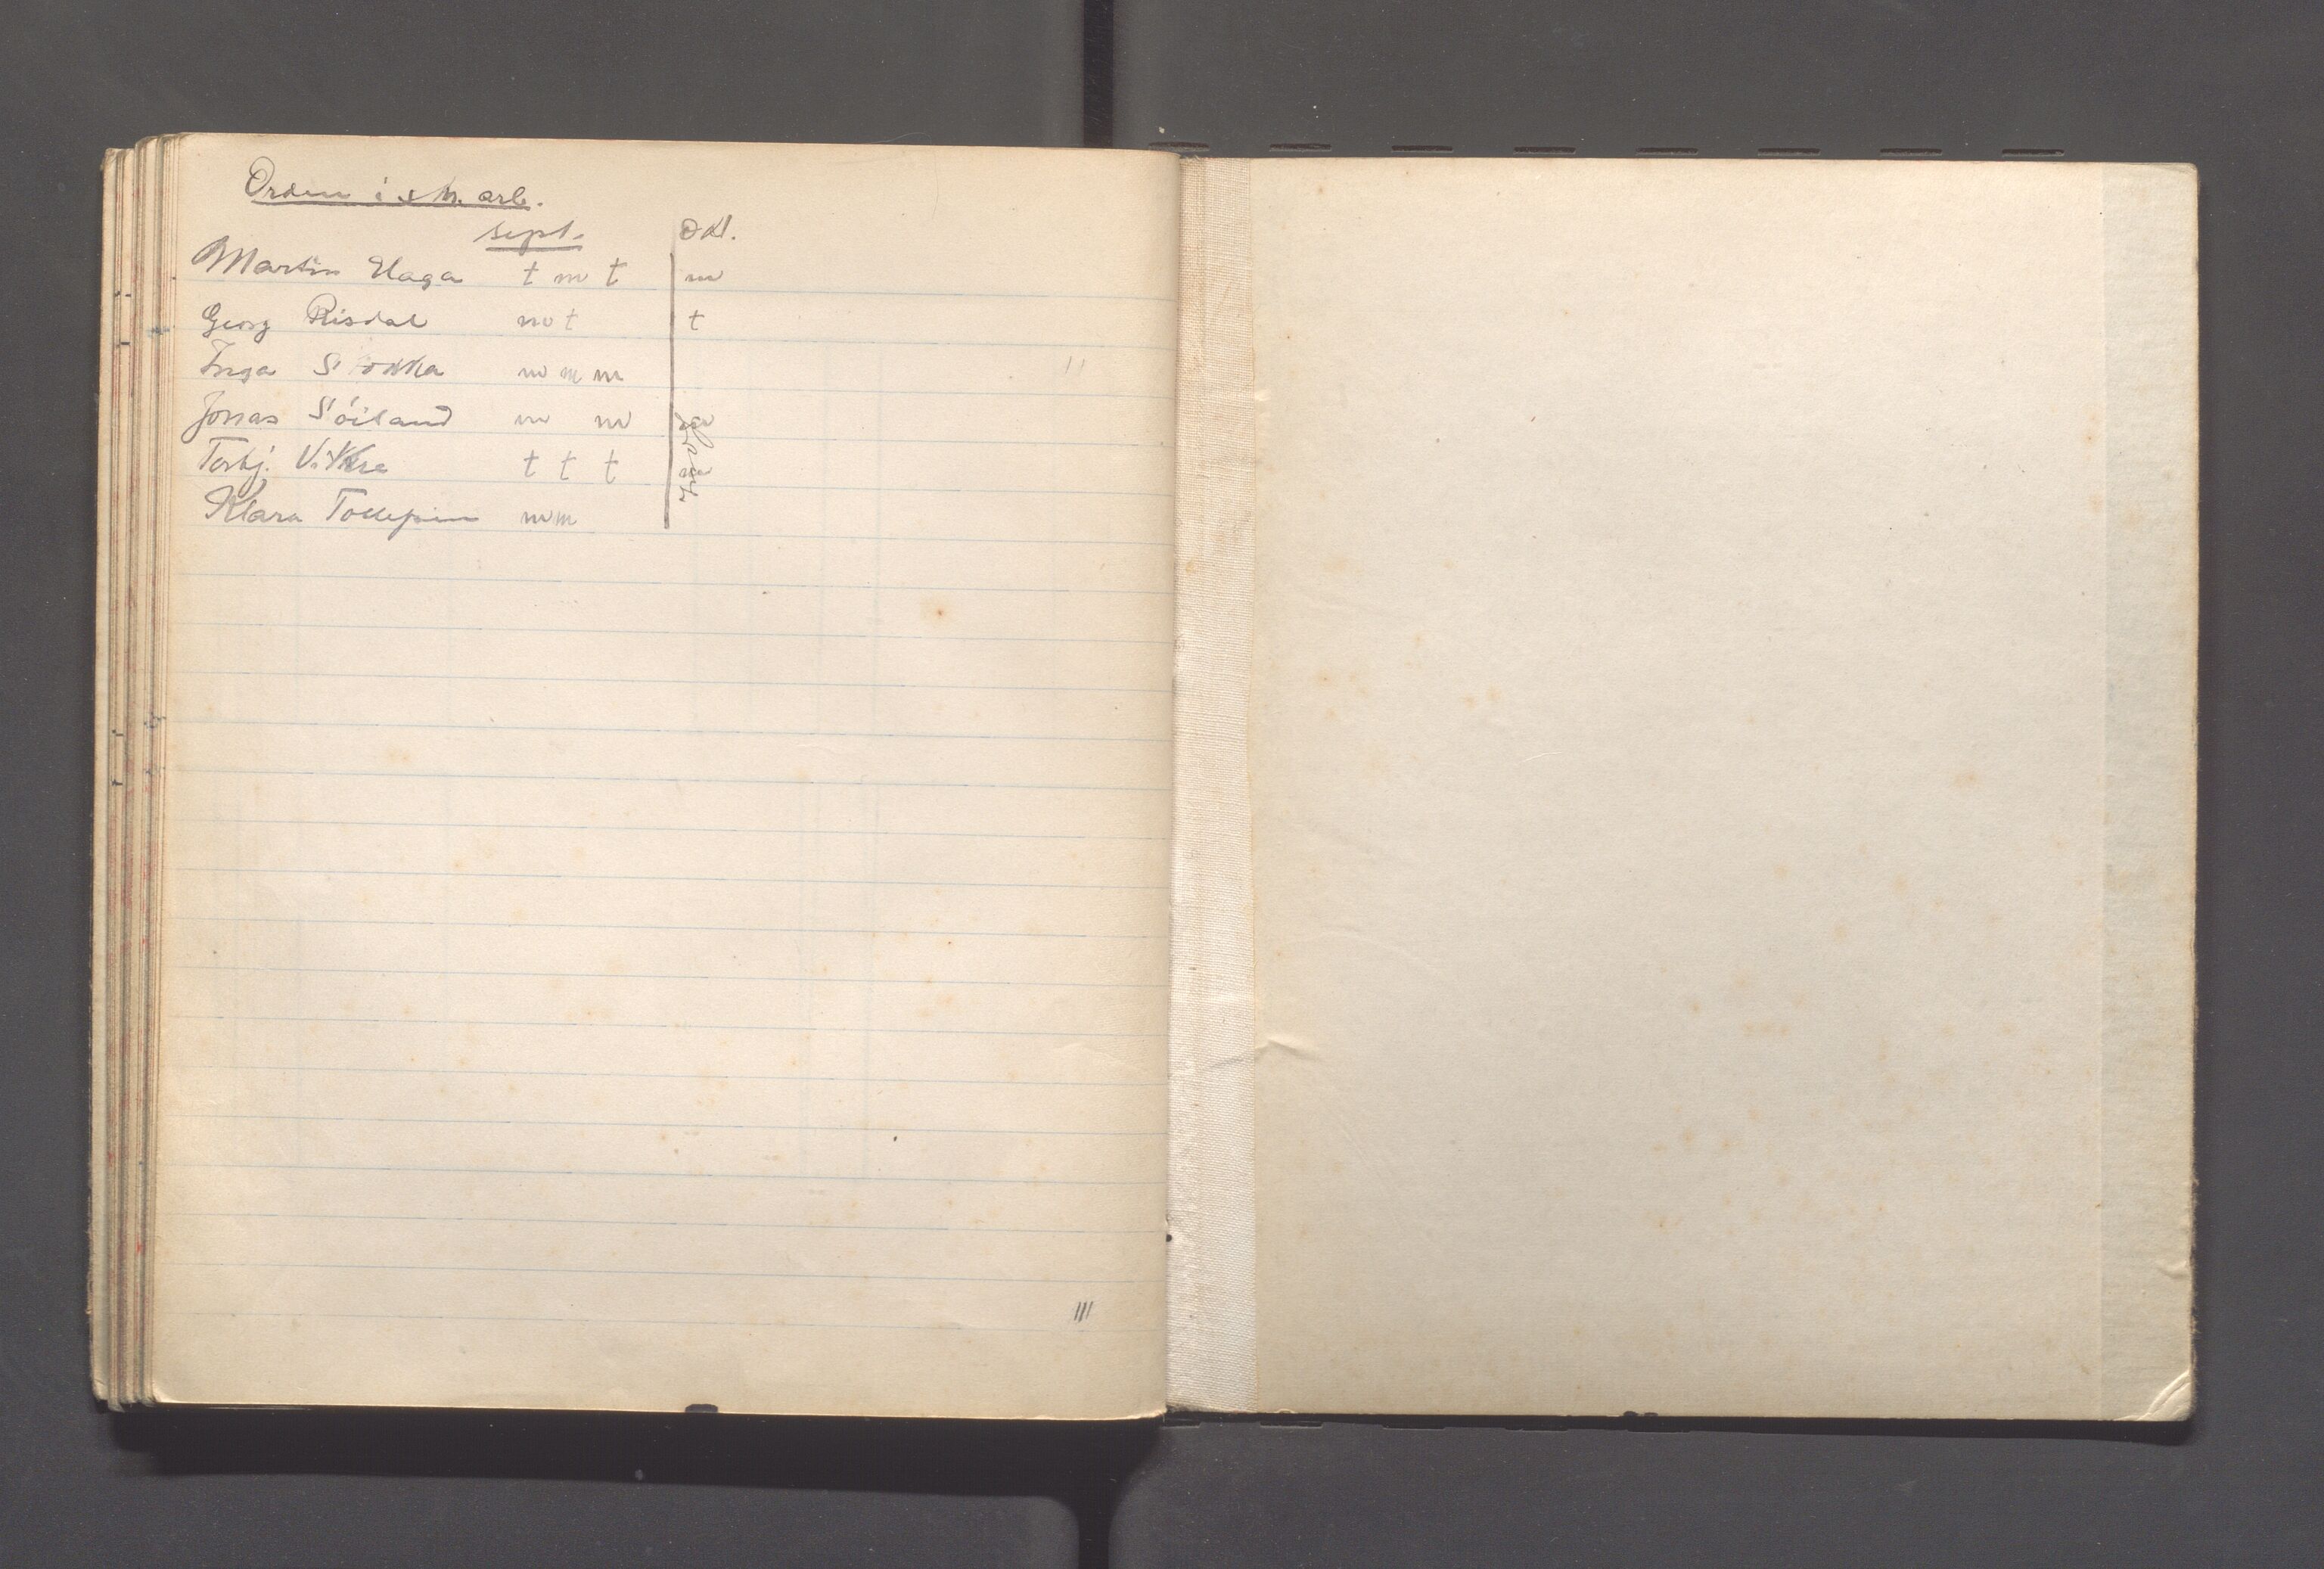 Orden i skr. arb.
sept. okt.
Martin Haga t m t m
Georg Risdal m t t
Inga Stokka m m m
Jonas Söiland m m
Torbj. Vikse t t t
Klara Tollefsen m m